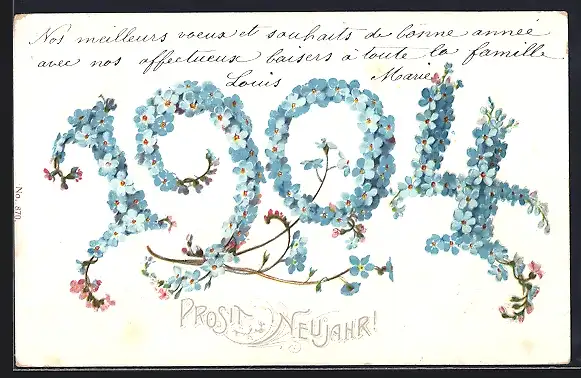 Nos meilleurs voeux et souhaits de bonne année
avec nos affectueux baisers à toute la famille.
Louis Marie
1904
No. 870.
PROSIT NEUJAHR!